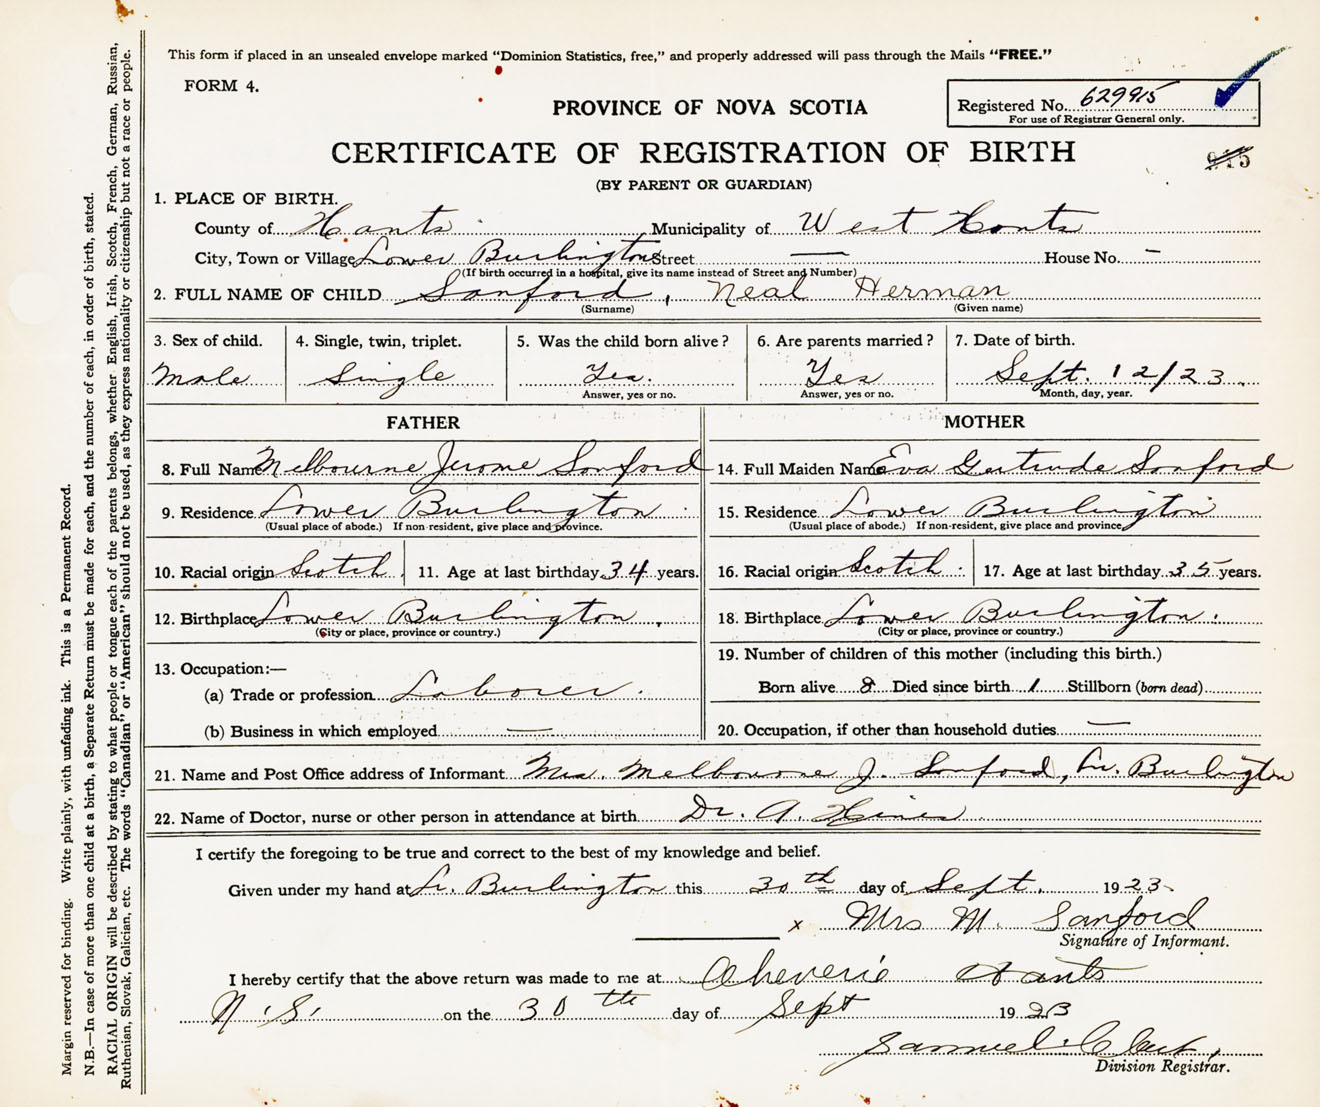 This form if placed in an unsealed envelope marked “Dominion Statistics, free,” and properly addressed will pass through the Mails “FREE.”
FORM 4.
Registered No. 629915
For use of Registrar General only.
PROVINCE OF NOVA SCOTIA
CERTIFICATE OF REGISTRATION OF BIRTH
915
(BY PARENT OR GUARDIAN)
1. PLACE OF BIRTH.
County of Hants Municipality of West Hants
City, Town or Village Lower Burlington Street — House No. –
(If birth occurred in a hospital, give its name instead of Street and Number)
2. FULL NAME OF CHILD Sanford, Neal Herman
(Surname) (Given name)
3. Sex of child. 4. Single, twin, triplet. 5. Was the child born alive? 6. Are parents married? 7. Date of birth.
Male Single Yes. Yes Sept. 12/23
Answer, yes or no. Answer, yes or no. Month, day, year.
FATHER MOTHER
8. Full Name Melbourne Jerome Sanford 14. Full Maiden Name Eva Gertrude Sanford
9. Residence Lower Burlington 15. Residence Lower Burlington
(Usual place of abode.) If non-resident, give place and province. (Usual place of abode.) If non-resident, give place and province
10. Racial origin Scotch 11. Age at last birthday 34 years. 16. Racial origin Scotch 17. Age at last birthday 35 years.
12. Birthplace Lower Burlington. 18. Birthplace Lower Burlington.
(City or place, province or country.) (City or place, province or country.)
13. Occupation:— 19. Number of children of this mother (including this birth.)
(a) Trade or profession Laborer. Born alive 8 Died since birth 1 Stillborn (born dead)
(b) Business in which employed — 20. Occupation, if other than household duties —
21. Name and Post Office address of Informant Mrs. Melbourne J. Sanford, Lr. Burlington
22. Name of Doctor, nurse or other person in attendance at birth Dr. A. Hines
I certify the foregoing to be true and correct to the best of my knowledge and belief.
Given under my hand at Lr. Burlington this 30th day of Sept. 1923
x Mrs M. Sanford
Signature of Informant.
I hereby certify that the above return was made to me at Cheverie Hants
N.S. on the 30th day of Sept 1923
Samuel
Division Registrar.
Margin reserved for binding. Write plainly, with unfading ink. This is a Permanent Record.
N.B.—In case of more than one child at a birth, a Separate Return must be made for each, and the number of each, in order of birth, stated.
RACIAL ORIGIN will be described by stating to what people or tongue each of the parents belongs, whether English, Irish, Scotch, French, German, Russian,
Ruthenian, Slovak, Galician, etc. The words “Canadian” or “American” should not be used, as they express nationality or citizenship but not a race or people.